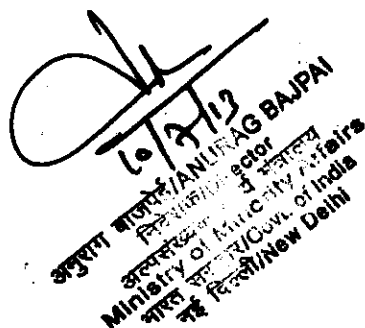 10/7/13
अनुराग बाजपेई/ANURAG BAJPAI
निदेशक/Director
अल्पसंख्यक मंत्रालय
Ministry of Minority Affairs
भारत सरकार/Govt. of India
नई दिल्ली/New Delhi